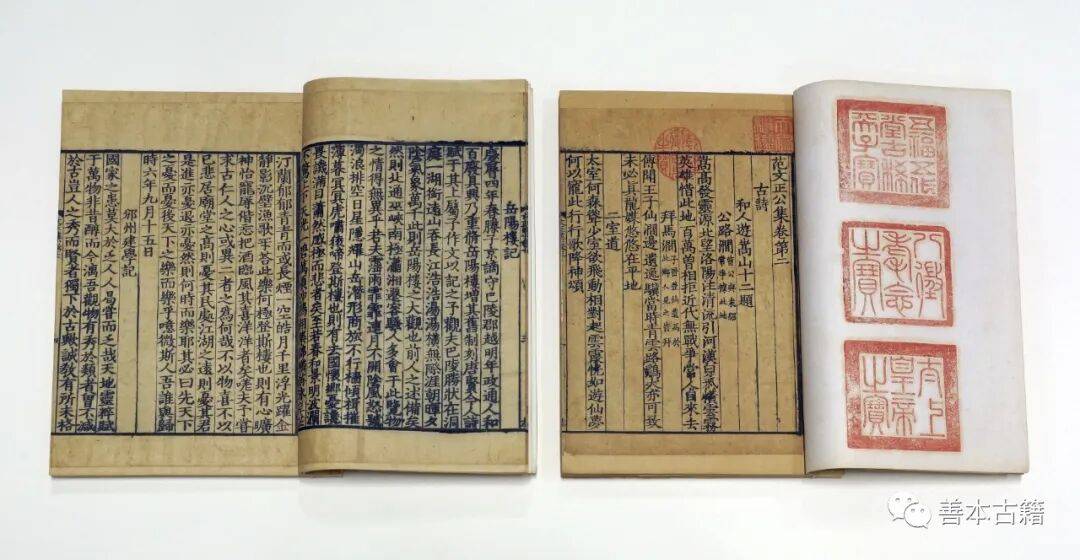 岳陽樓記
慶曆四年春滕子京謫守巴陵郡越明年政通人和
百廢具興乃重脩岳陽樓增其舊制刻唐賢今人詩
賦于其上屬予作文以記之予觀夫巴陵勝狀在洞
庭一湖銜遠山吞長江浩浩湯湯橫無際涯朝暉夕
陰氣象萬千此則岳陽樓之大觀也前人之述備矣
然則北通巫峽南極瀟湘遷客騷人多會于此覽物
之情得無異乎若夫霪雨霏霏連月不開陰風怒號
濁浪排空日星隱耀山岳潛形商旅不行檣傾楫摧
薄暮冥冥虎嘯猿啼登斯樓也則有去國懷鄉憂讒
畏譏滿目蕭然感極而悲者矣至若春和景明波瀾
汀蘭郁郁青青而或長煙一空皓月千里浮光躍金
靜影沉壁漁歌互荅此樂何極登斯樓也則有心曠
神怡寵辱偕忘把酒臨風其喜洋洋者矣嗟夫予嘗
求古仁人之心或異二者之爲何哉不以物喜不以
已悲居廟堂之高則憂其民處江湖之遠則憂其君
是進亦憂退亦憂然則何時而樂耶其必曰先天下
之憂而憂後天下之樂而樂乎噫微斯人吾誰與歸
時六年九月十五日
邠州建學記
國家之患莫大於乏人人曷嘗而乏哉天地靈粹賦
于萬物非昔醇而今漓吾觀物有秀於類者曾不減
於古豈人之秀而賢者獨下於古歟誠教有所未格
五福五代堂古稀天子寶
八徵耄念之寶
太上皇帝之寶
范文正公集卷第二
古詩
和人遊嵩山十二題
公路澗
嵩高發靈源北望洛陽注清流引河漢白氣橫雲霧
英雄惜此地百萬曾相拒近代無戰爭常人自來去
拜馬澗
傳聞王子仙澗邊遺當時青雲路鷄犬亦可致
未必真龍媒悠悠在平地
二室道
太室何森聳少室欲飛動相對起雲靈恍如遊仙夢
何以寵此行行歌降神頌
善本古籍